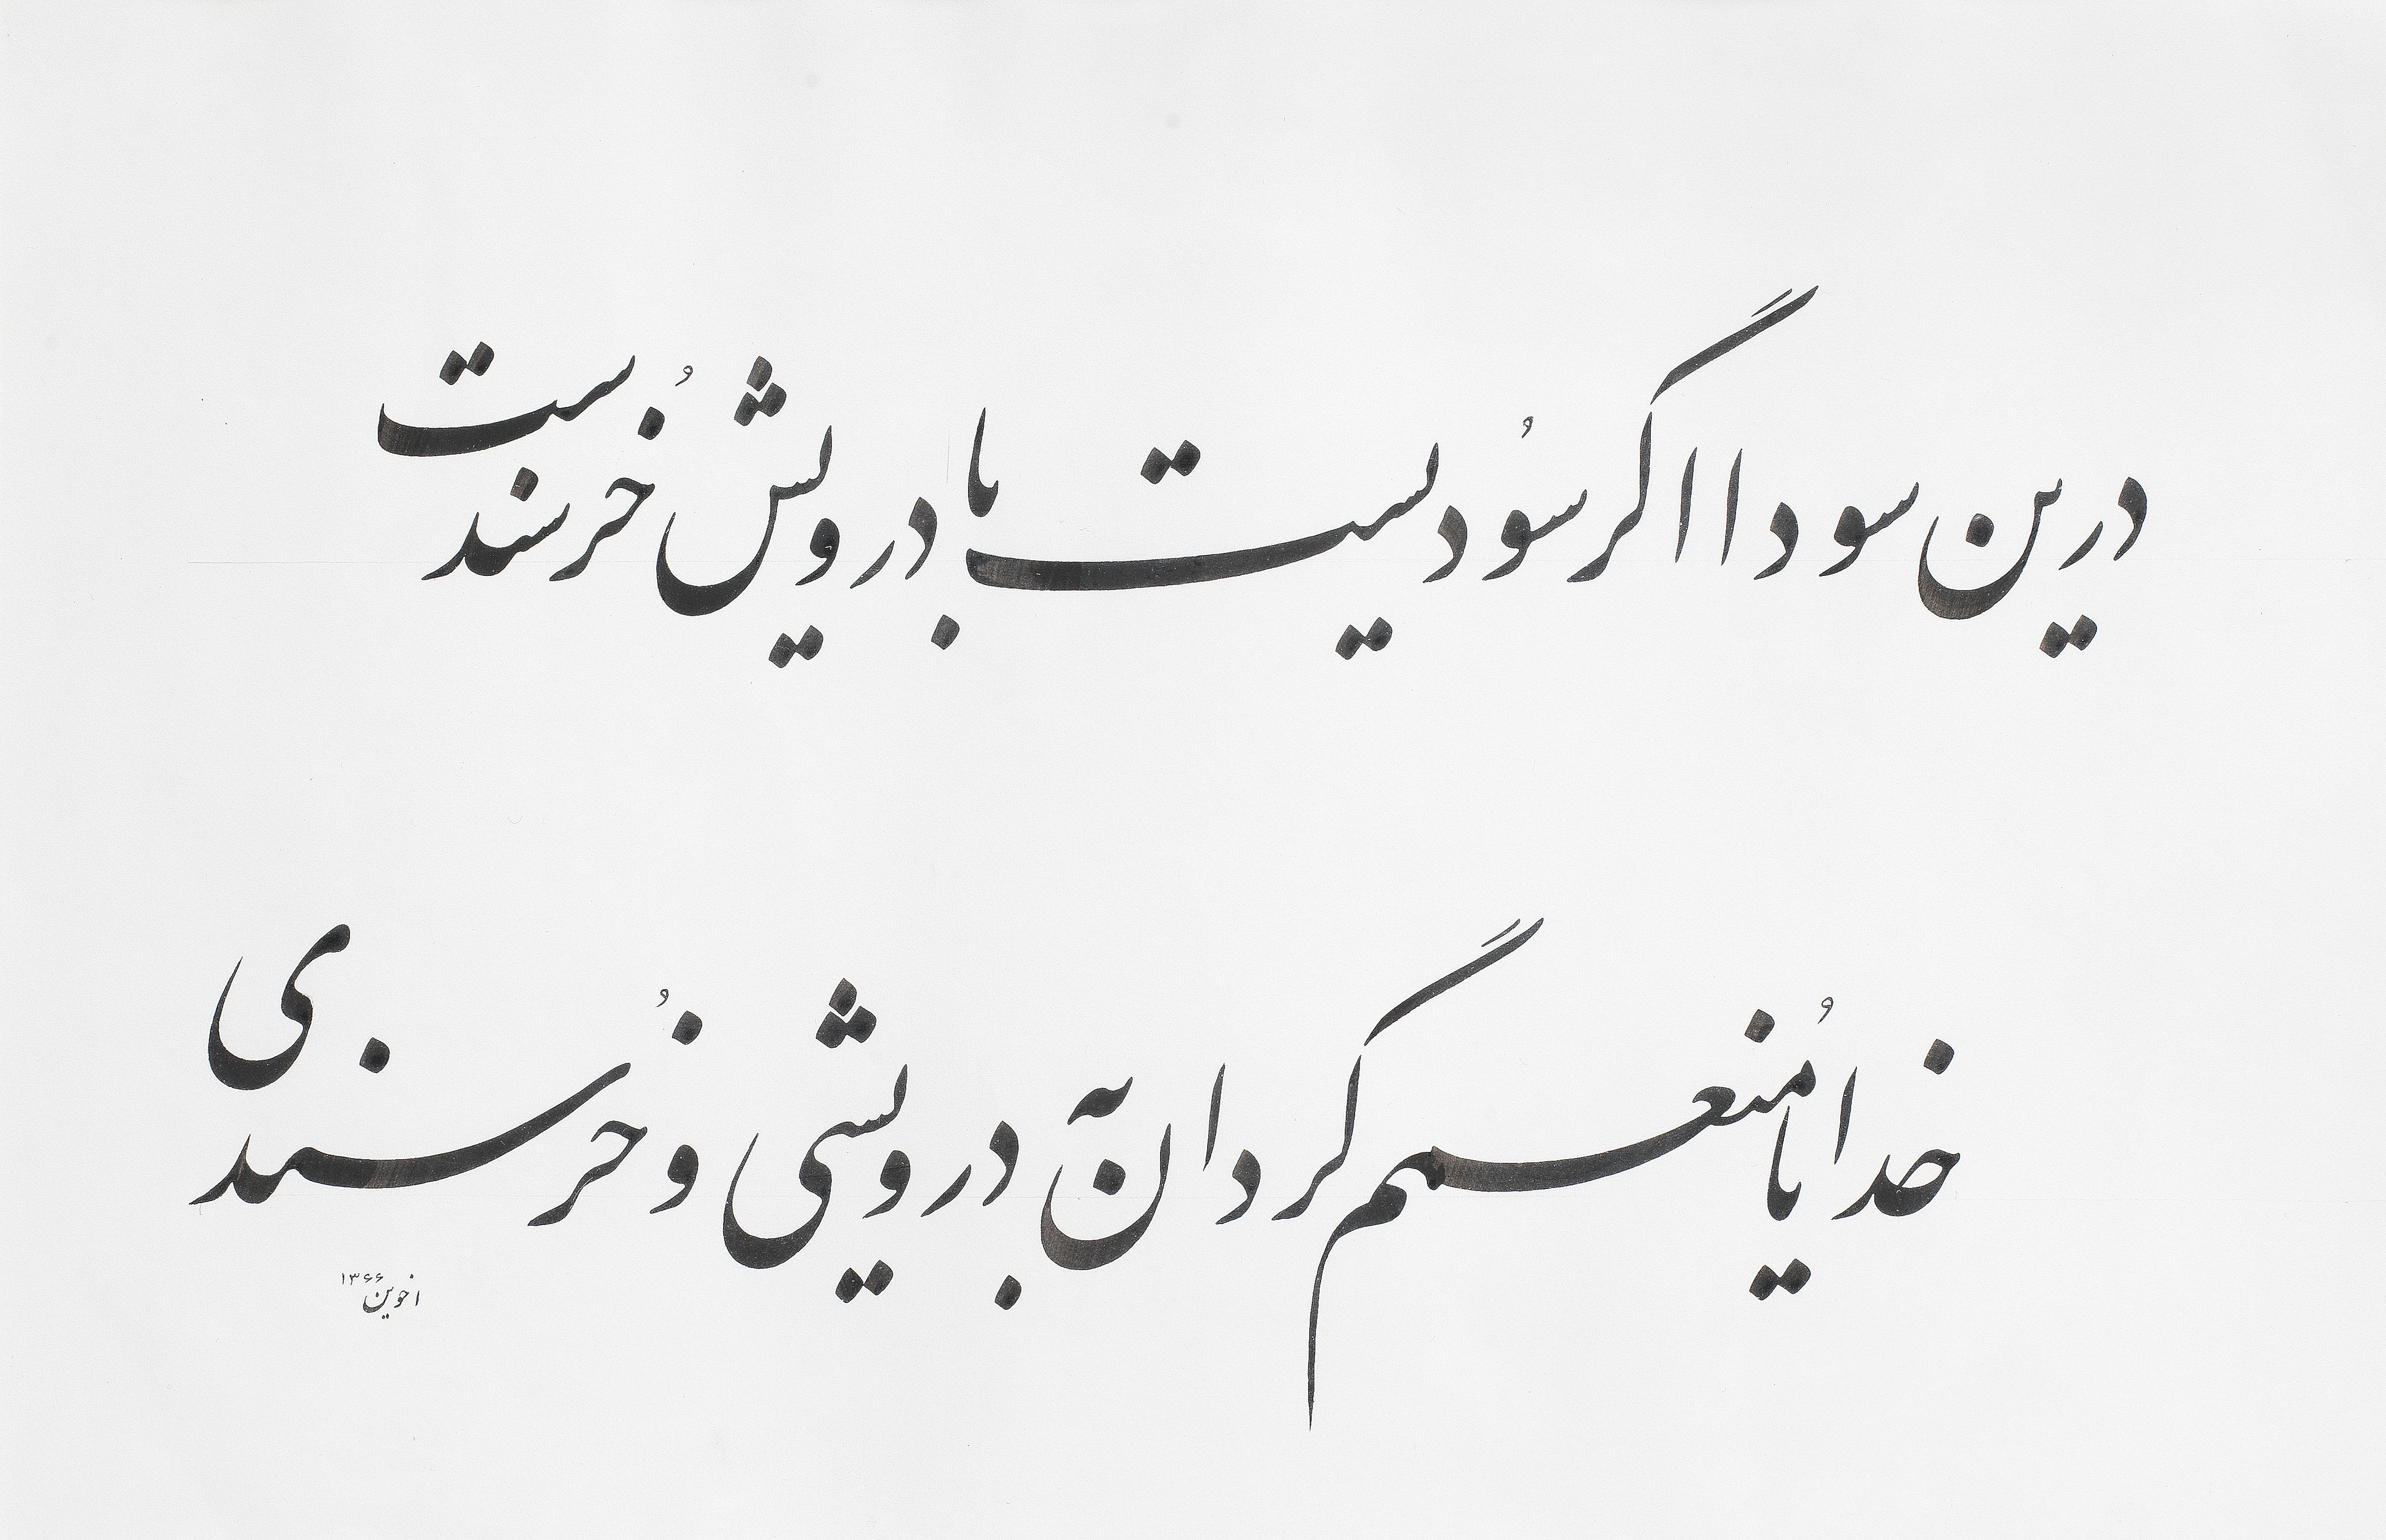 درین سودا اگر سُودیست با درویش خُرسندست
خدایا مُنعمم گردان به درویشی و خُرسندی
۱۳۶۶
اخوین